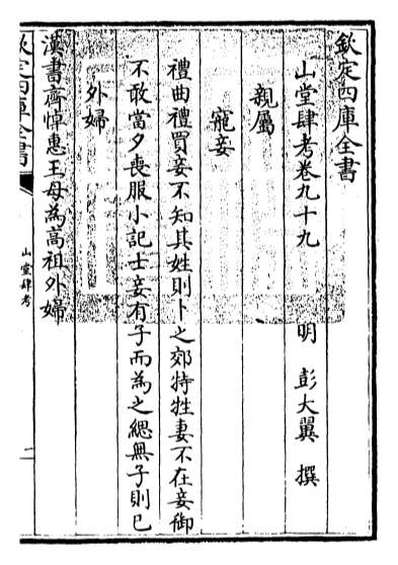 欽定四庫全書
山堂肆考卷九十九 明 彭大翼 撰
親屬
寵妾
禮曲禮買妾不知其姓則卜之郊特牲妻不在妾御
不敢當夕喪服小記士妾有子而為之緦無子則已
外婦
漢書齊悼惠王母為高祖外婦
欽定四庫全書
山堂肆考